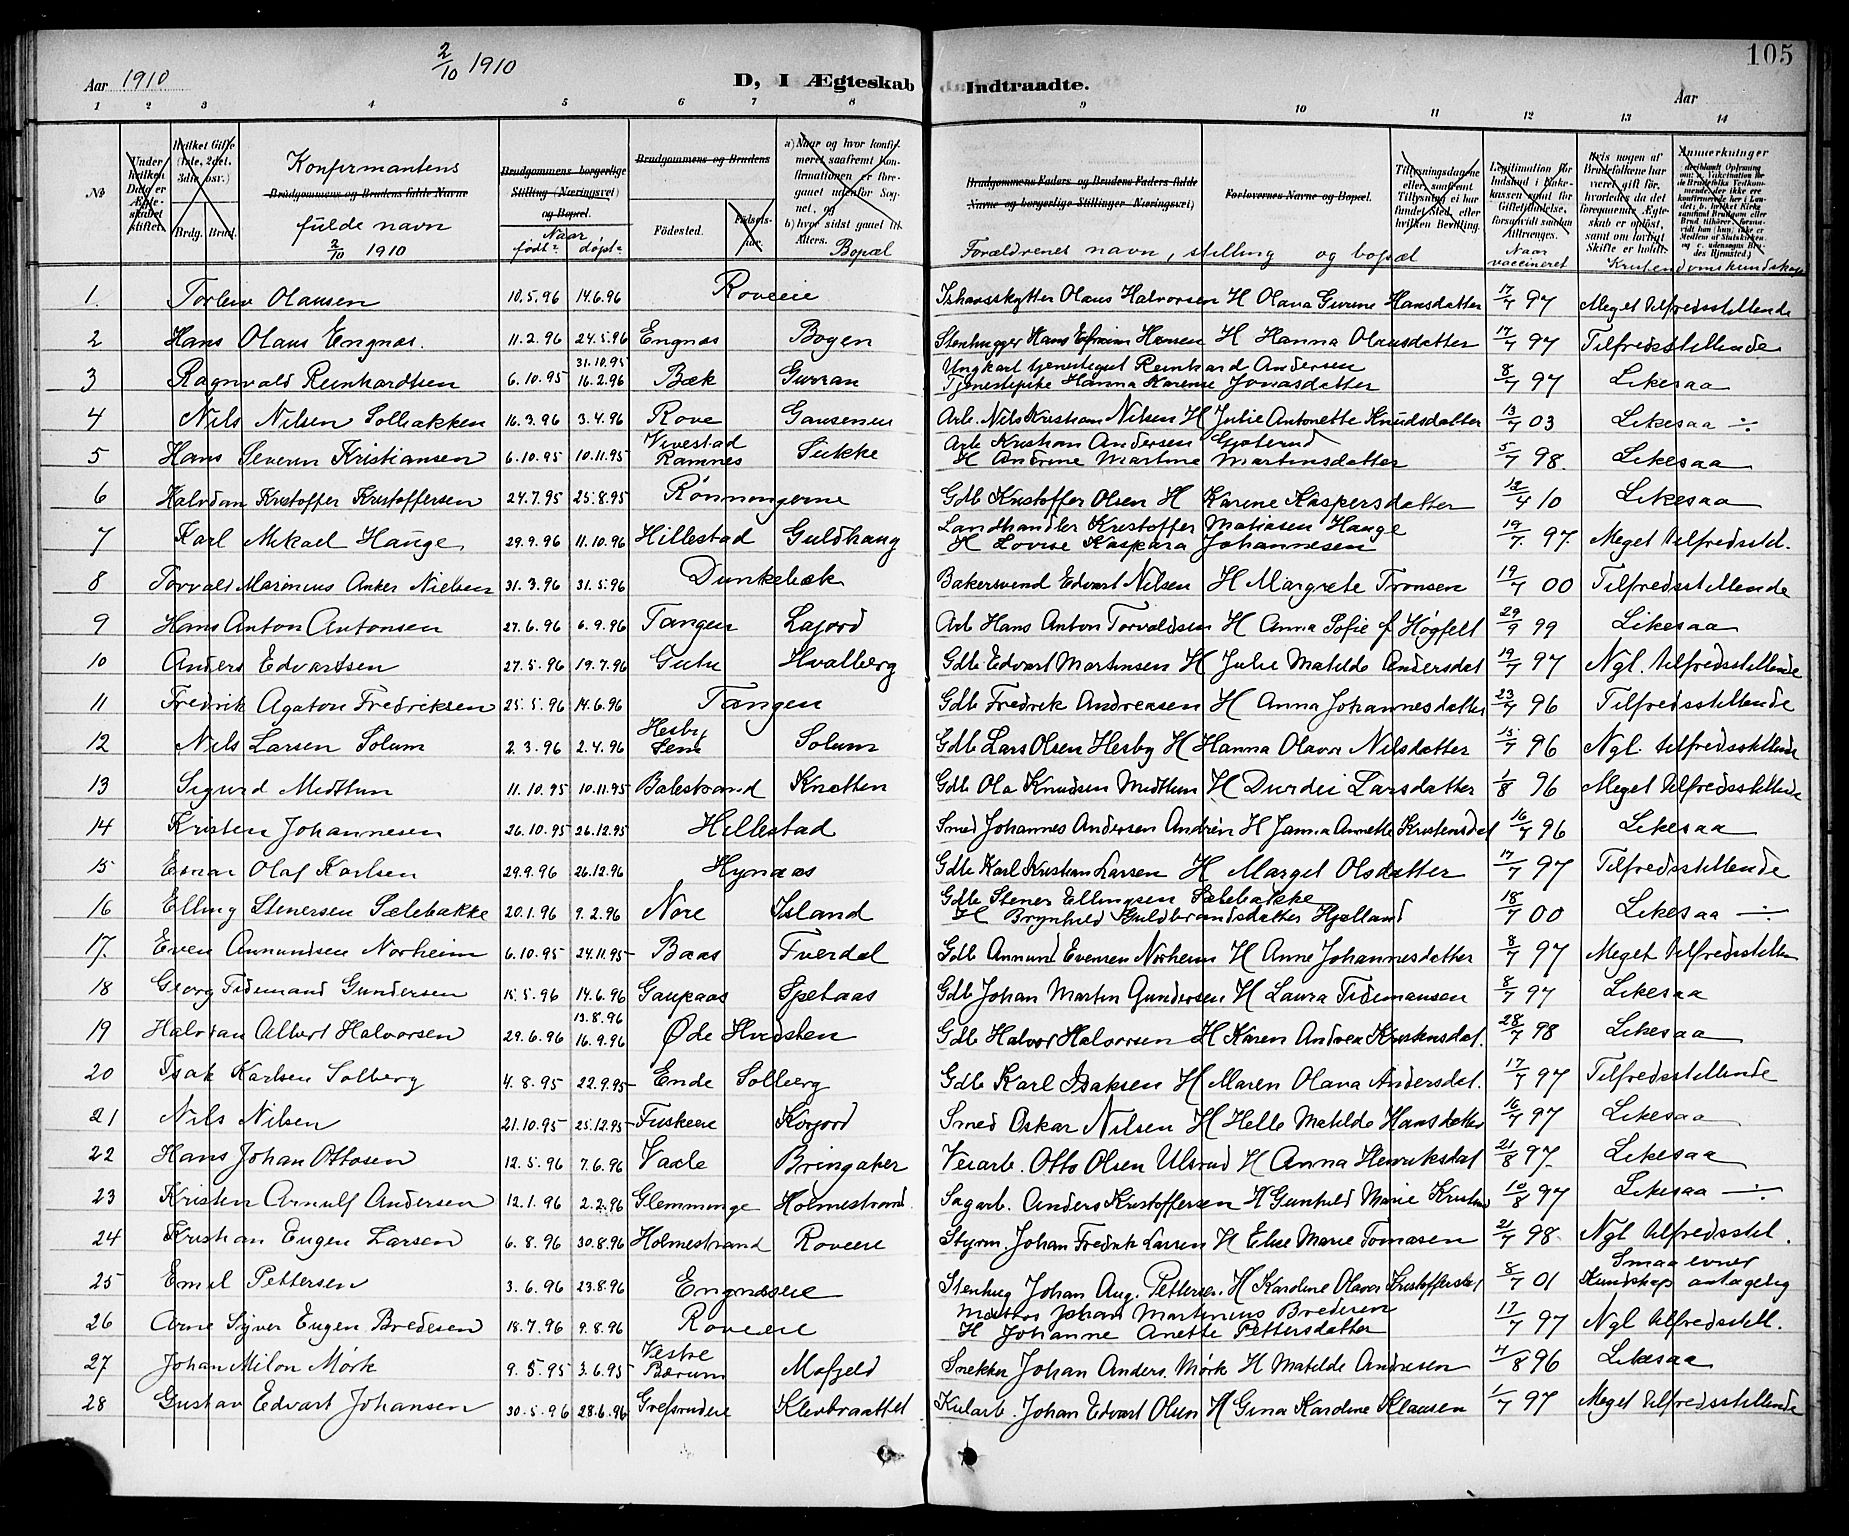 105
Aar 1910
2/10 1910
D, I Ægteskab Indtraadte.
Aar
1 2 3 4 5 6 7 8 9 10 11 12 13 14
No
Under hvilken Dato er Ægteskabet stiftet.
Hvilket Gifte (1ste, 2det, 3die osv.)
Brdg. Brud.
Konfirmantens
Brudgommens og Brudens fulde Navne
fulde navn
2/10 1910
Brudgommens borgerlige Stilling (Næringsvei) og Bopæl.
Naar
født? døpt?
Brudgommens og Brudens
Fødested. Fødselsaar.
a) Naar og hvor konfirmeret saafremt Konfirmationen er foregaaet udenfor Sognet, og
b) hvor sidst gaaet til Alters.
Bopæl
Brudgommens Faders og Brudens Faders fulde Navne og borgerlige Stillinger (Næringsvei)
Forlovernes Navne og Bopæl.
Forældrenes navn, stilling og bopæl
Tillysningsdagene eller, saafremt Tillysning ei har fundet Sted, efter hvilken Bevilling.
Naar vaccineret
Kristendomskundskap
1. Torleiv Olausen 10.5.96 14.6.96 Roveeie Ishavsskytter Olaus Halvorsen H Olava Gurine Hansdatter 17/7 97 Meget tilfredsstillende
2 Hans Olaus Engnæs. 11.2.96 24.5.96 Engnæs Bogen Stenhugger Hans Efraim Hansen H Hanna Olausdatter 17/7 97 Tilfredsstillende
3 Ragnvald Reinhardtsen 6.10.95 31.12.95 16.2.96 Bæk Gurran Ungkarl tjenestegut Reinhard Andersen
Tjenestepike Hanna Karine Jonasdatter 8/7 97 Likesaa
4 Nils Nilsen Solbakken 16.3.96 3.4.96 Rove Gausenen Arb. Nils Kristian Nilsen H Julie Antonette Knudsdatter 13/7 03 Likesaa ÷
5 Hans Severin Kristiansen 6.10.95 10.11.95 Vivestad Ramnes Sukke Arb Kristian Andersen Gjøterud
H Andrine Martine Martinsdatter 5/7 98. Likesaa
6 Halvdan Kristoffer Kristoffersen 24.7.95 25.8.95 Rønningerne Gdb Kristoffer Olsen H Karine Kaspersdatter 12/4 10 Likesaa
7 Karl Mikael Hauge 29.9.96 11.10.96 Hillestad Guldhaug Landhandler Kristoffer Matiasen Hauge
H Lovise Kaspara Johannesen 19/7. 97. Meget tilfredsstil.
8 Torvald Marinius Anker Nielsen 31.3.96 31.5.96 Dunkebæk Bakersvend Edvart Nilsen H Margrete Tronsen 19/7 00 Tilfredsstillende
9 Hans Anton Antonsen 27.6.96 6.9.96 Tangen Lajord Arb Hans Anton Torvaldsen H Anna Sofie f Høgfelt 29/9 99 Likesaa
10 Anders Edvartsen 27.5.96 19.7.96 Gutu Hvalberg Gdb Edvart Martinsen H Julie Matilde Andersdat 19/7 97 Ngl. tilfredsstillende
11 Fredrik Agaton Fredriksen 25.5.96 14.6.96 Tangen Gdb Fredrik Andreasen H Anna Johannesdatter 23/7 96 Tilfredsstillende
12 Nils Larsen Solum 2.3.96 2.4.96 Hesby Sem Solum Gdb Lars Olsen Hesby H Hanna Olava Nilsdatter 15/7 96 Ngl. tilfredsstillende
13 Sigurd Midttun 11.10.95 10.11.95 Balestrand Knatten Gdb Ola Knudsen Midttun H Durdei Larsdatter 1/8 96 Meget tilfredsstillende
14 Kristen Johannesen 26.10.95 26.12.95 Hillestad Smed Johannes Andersen Andrén H Janna Annette Kristensdat 16/7 96 Likesaa
15 Einar Olaf Karlsen 29.9.96 26.12.96 Hynaas Gdb Karl Kristian Larsen H Marget Olsdatter 17/7 97 Tilfredsstillende
16 Elling Stenersen Sælebakke 20.1.96 9.2.96 Nore Island Gdb Stener Ellingsen Sælebakke
H Brynhild Guldbrandsdatter Hjelland 18/7 00 Likesaa ÷
17. Even Amundsen Norheim 6.10.95 24.11.95 Baas Tverdal Gdb Amund Evensen Norheim H Anne Johannesdatter 8/7 97 Meget tilfredsstillen
18 Georg Tidemand Gundersen 15.5.96 14.6.96 Gaupaas Spetaas Gdb Johan Martin Gundersen H Laura Tidemansen 8/7 97 Likesaa
19 Halvdan Albert Halvorsen 29.6.96 13.8.96 16.9.96 Øde Hvidsten Gdb Halvor Halvorsen H Karen Andrea Kristensdat. 28/7 98 Likesaa
20 Isak Karlsen Solberg 4.8.95 22.9.95 Ende Solberg Gdb Karl Isaksen H Maren Olava Andersdat. 17/7 97 Tilfredsstillende
21 Nils Nilsen 21.10.95 25.12.95 Fuskeeie Korjord Smed Oskar Nilsen H Helle Matilde Hansdatter 16/7 97 Likesaa
22 Hans Johan Ottosen 12.5.96 7.6.96 Vaale Bringaker Veiarb. Otto Olsen Ulsrud H Anna Henriksdat 21/8 97. Likesaa
23 Kristen Arnulf Andersen 12.1.96 2.2.96 Glemminge Holmestrand. Sagarb. Anders Kristoffersen H Gunhild Marie Kristens 10/8 97 Likesaa ÷
24 Kristian Eugen Larsen 6.8.96 30.8.96 Holmestrand Roveeie Styrm. Johan Fredrik Larsen H Elise Marie Tomasen 21/7 98. Ngl tilfredsstil.
25 Emil Pettersen 3.6.96 23.8.96 Engnæseie Stenhug Johan Aug. Pettersen. H Karoline Olava Kristoffersdat 8/7 01 Smaa evner
Kundskap antagelig
26 Arne Syver Eugen Bredesen 18.7.96 9.8.96 Roveeie Matros Johan Martinius Bredesen
H Johanne Anette Pettersdatter 17/7 97 Ngl tilfredsstill.
27 Johan Milon Mørk 9.5.95 3.6.95 Vestre Bærum Mofjeld Snekker Johan Anders. Mørk H Matilde Andresen 4/8 96 Likesaa
28 Gustav Edvart Johansen 30.5.96 28.6.96 Grefsrudeie Klevbraattet Kularb. Johan Edvart Olsen H Gina Karoline Klausen 1/7 97 Meget tilfredsstillende